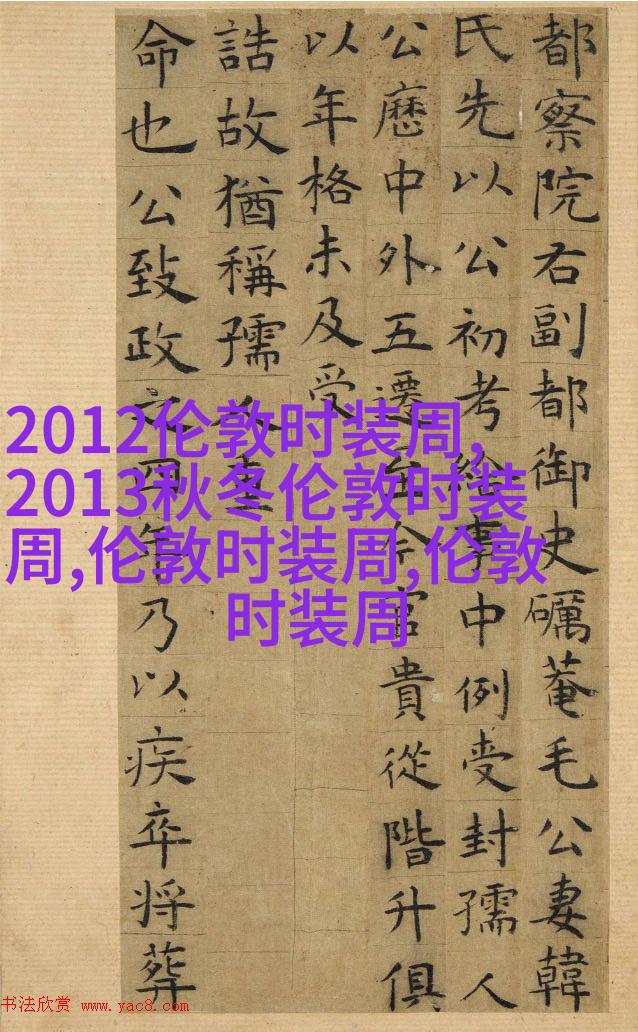 都察院右副都御史礪菴毛公妻韓
氏先以公初考給事中例受封孺人
公歷中外五遷至今官貴從階升俱
以年格未及受
誥故猶稱孺人
命也公致政之四年乃以疾卒将葬
2012伦敦时装周,
2013秋冬伦敦时装
周,伦敦时装周,伦敦
时装周
书法欣赏 www.yac8.com